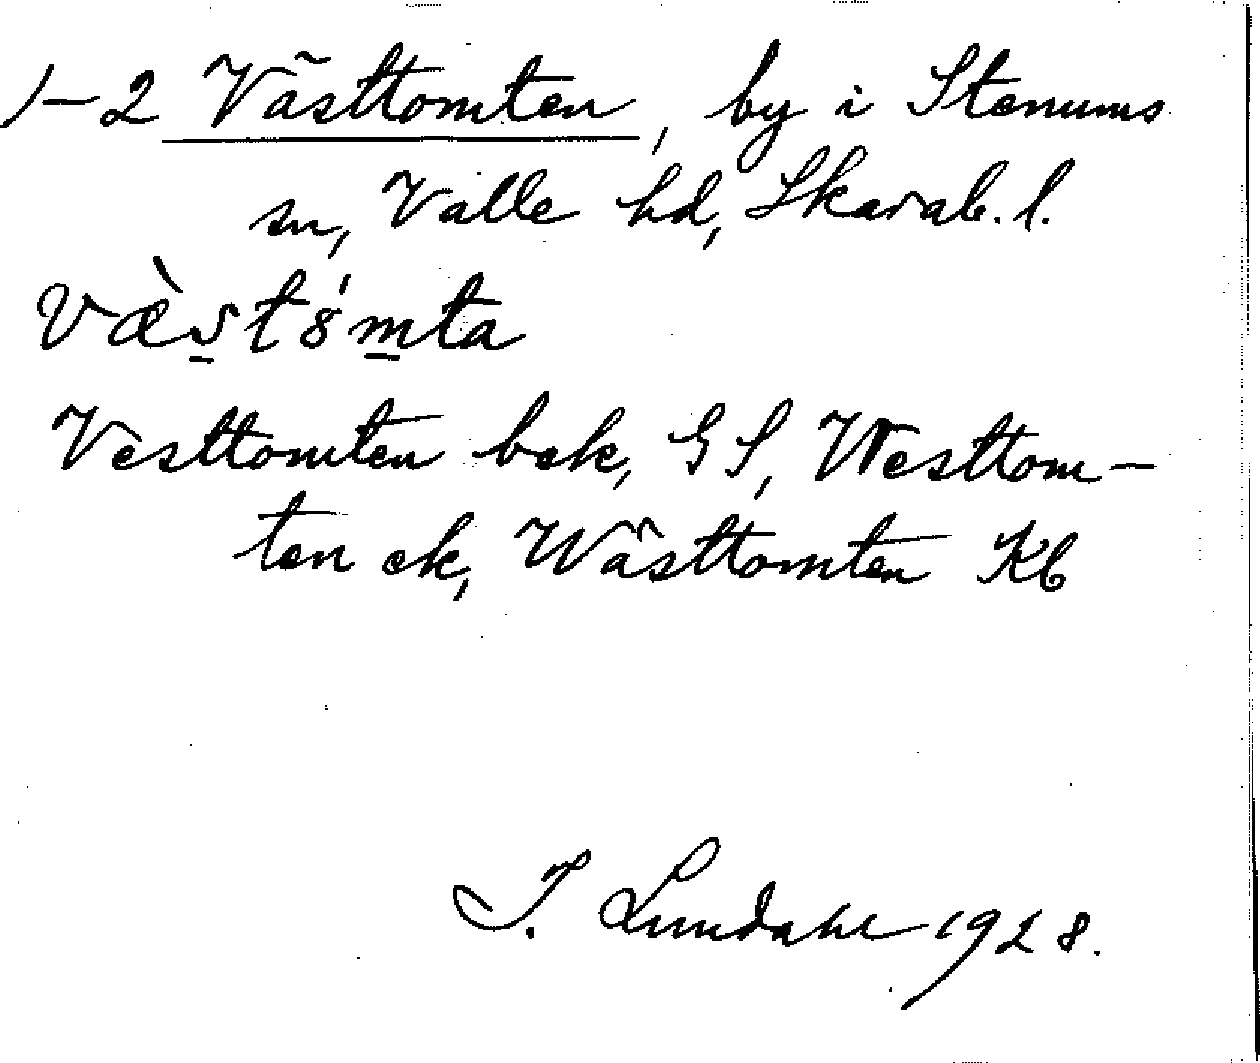 1–2 Västtomten, by i Stenums
sn, Valle hd, Skarab. l.
væ̀st8́mta
Vesttomten bek, GS, Westtom–
ten ek, Wästtomten Kb
I. Lundahl 1928.